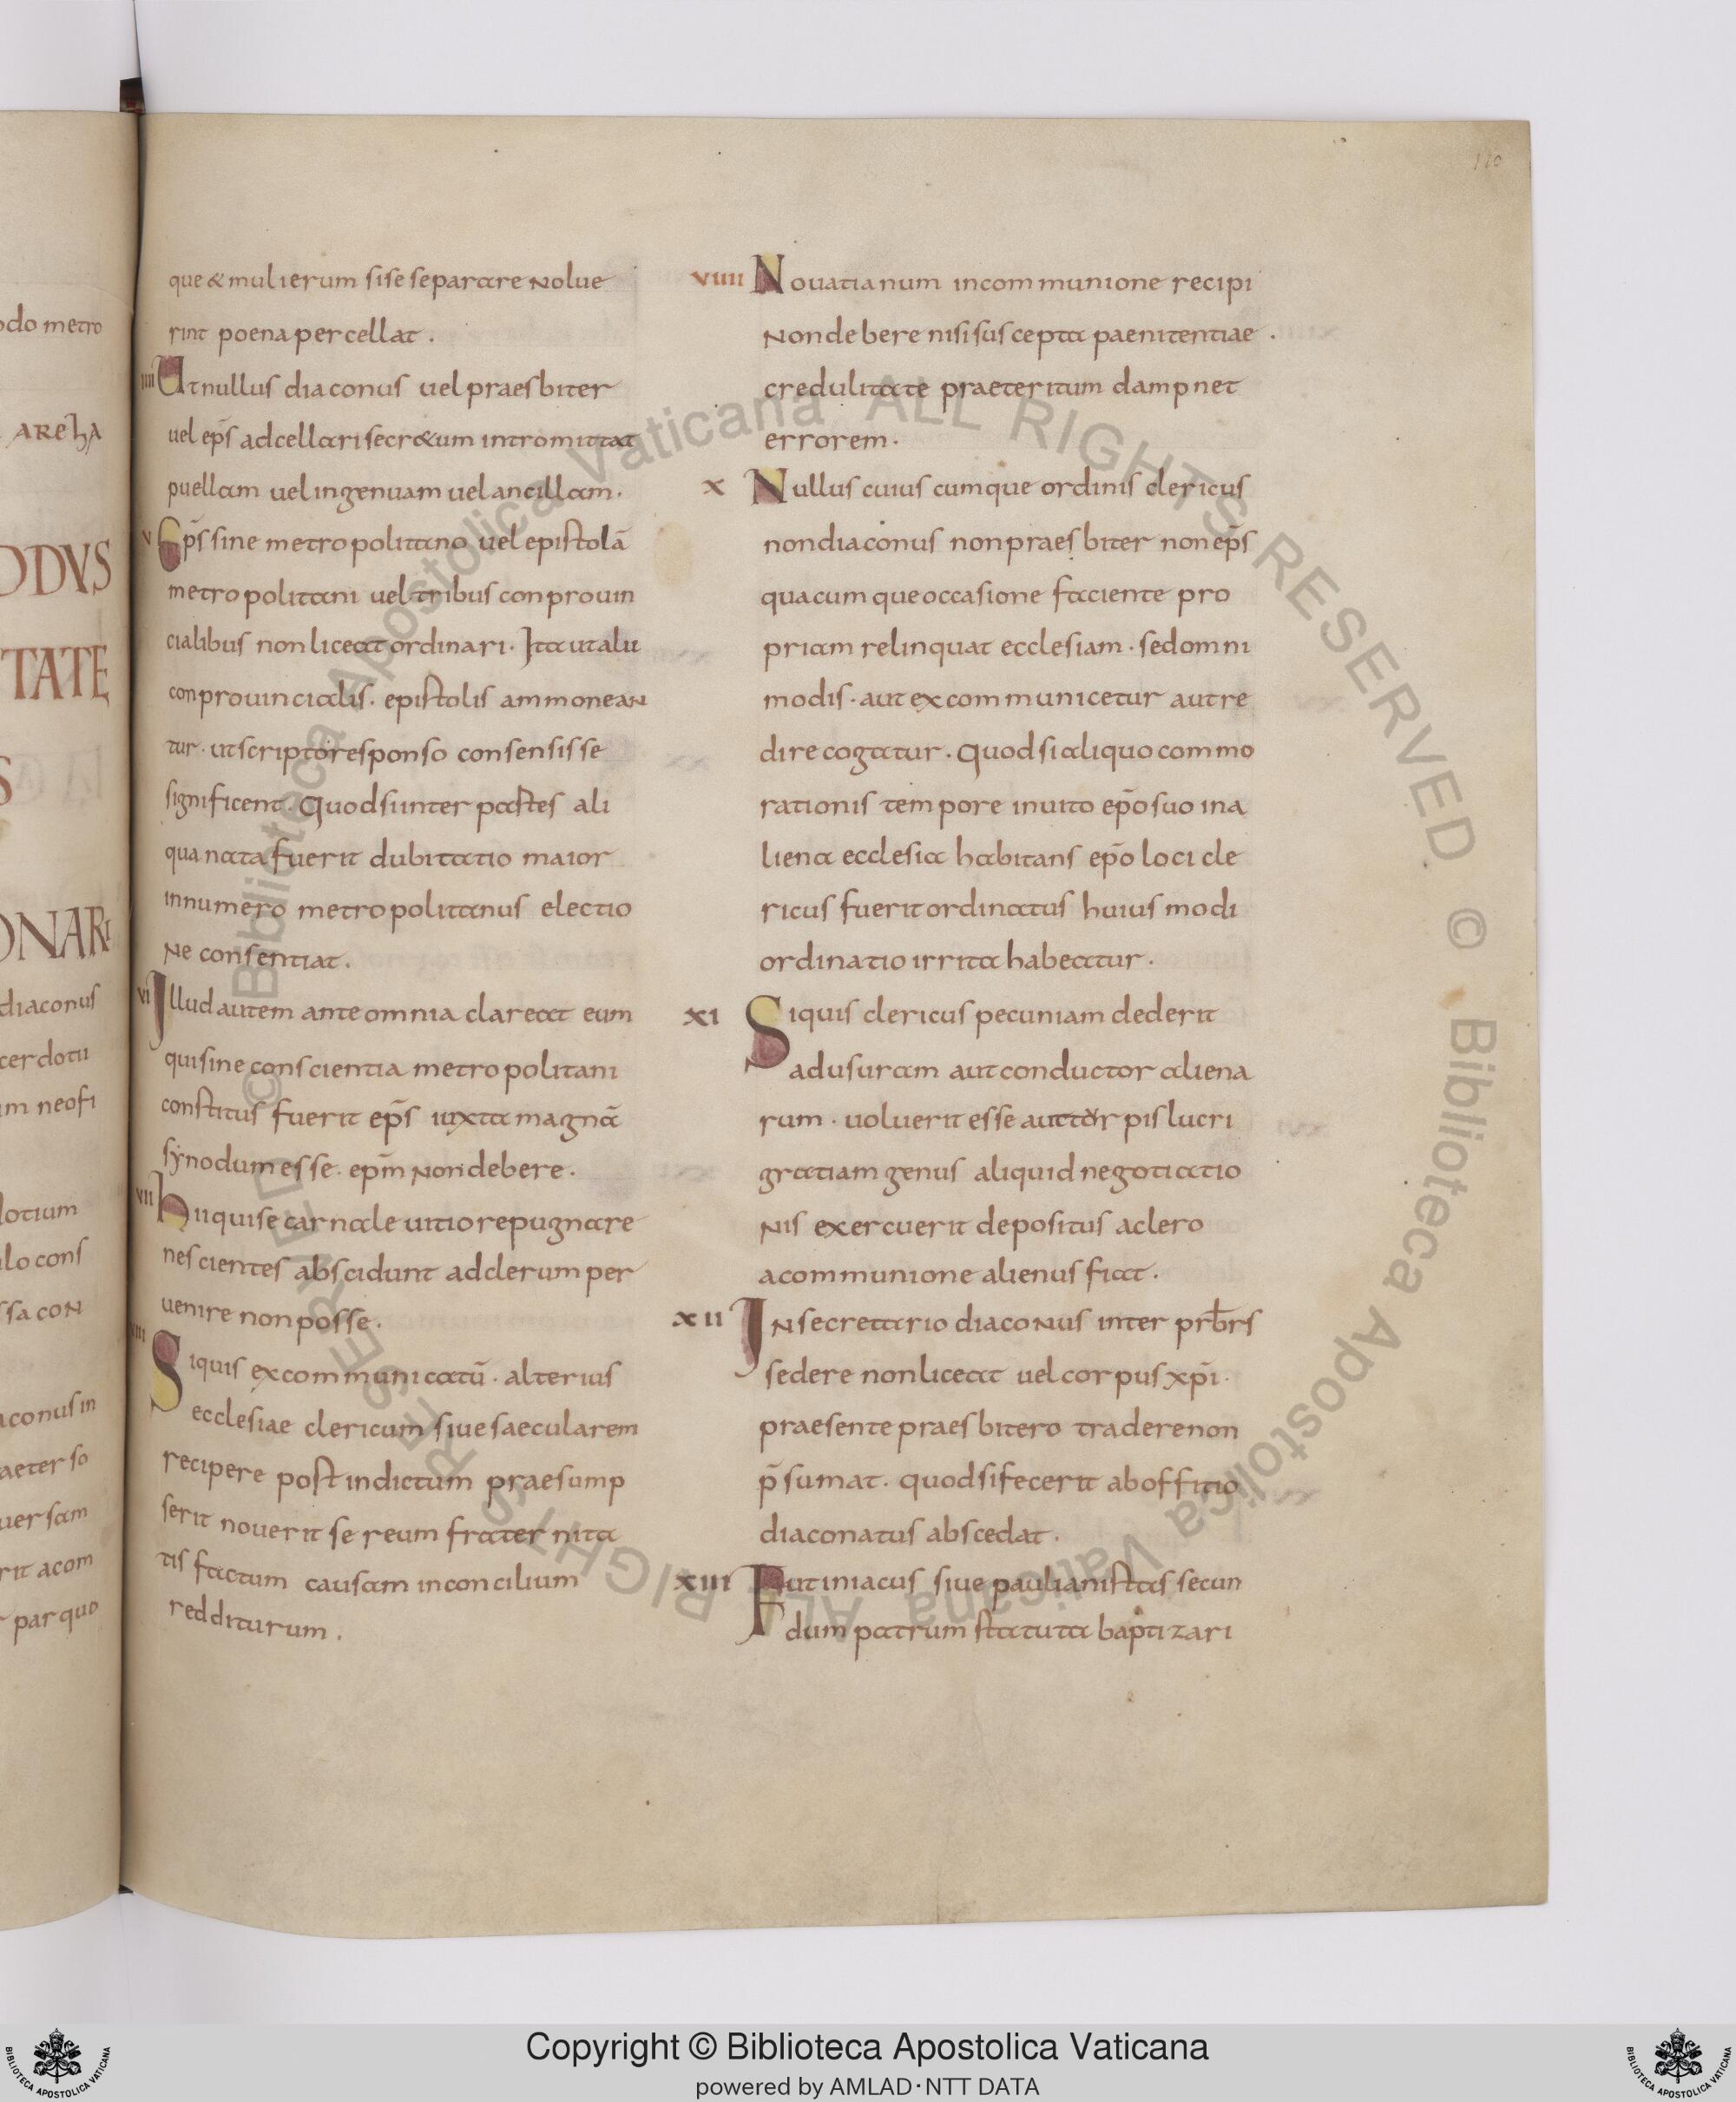 odo metro
AREhA
ODVS
TATE
S
ONARI
diaconus
cerdotii
um neofi
dotium
ulo cons
ssa con
aconus in
aeter so
uersam
rit acom
r par quo
que & mulierum si se separare nolue
rint poena percellat.
IIII Ut nullus diaconus uel praesbiter
uel ep̄s ad cellari secr&um intromittat
puellam uel ingenuam uel ancillam.
V Ep̄s sine metropolitano uel epistolā
metropolitani uel tribus conprouin
cialibus non liceat ordinari. Ita ut alii
conprouincialis. epistolis ammonean
tur. ut scripto responso consensisse
significent. Quod si inter partes ali
qua nata fuerit dubitatio maior
in numero metropolitanus electio
ne consentiat.
VI Illud autem ante omnia clareat eum
qui sine conscientia metropolitani
constitus fuerit ep̄s iuxta magnā
synodum esse. ep̄m non debere.
VII Hii qui se carnale uitio repugnare
nescientes abscidunt ad clerum per
uenire non posse.
VIII Si quis excommunicatū. alterius
ecclesiae clericum siue saecularem
recipere post indictum praesump
serit nouerit se reum fraternita
tis factum causam in concilium
redditurum.
VIIII Nouatianum in communione recipi
non debere nisi suscepta paenitentiae.
credulitate praeteritum dampnet
errorem.
X Nullus cuiuscumque ordinis clericus
non diaconus non praesbiter non ep̄s
quacumque occasione faciente pro
priam relinquat ecclesiam. sed omni
modis. aut excommunicetur aut re
dire cogatur. Quod si aliquo commo
rationis tempore inuito ep̄o suo in a
liena ecclesia habitans ep̄o loci cle
ricus fuerit ordinatus huius modi
ordinatio irrita habeatur.
XI Si quis clericus pecuniam dederit
ad usuram aut conductor aliena
rum. uoluerit esse aut tor pis lucri
gratiam genus aliquid negotiatio
nis exercuerit depositus a clero
a communione alienus fiat.
XII In secretario diaconus inter prb̄rs
sedere non liceat uel corpus xp̄i.
praesente praesbitero tradere non
p̄sumat. quod si fecerit ab offitio
diaconatus abscedat.
XIII Futiniacus siue paulianistas secun
dum patrum statuta baptizari
© Biblioteca Apostolica Vaticana ALL RIGHTS RESERVED © Biblioteca Apostolica Vaticana ALL RIGHTS RESERVED
Copyright © Biblioteca Apostolica Vaticana
powered by AMLAD·NTT DATA
BIBLIOTECA APOSTOLICA VATICANA
BIBLIOTECA APOSTOLICA VATICANA